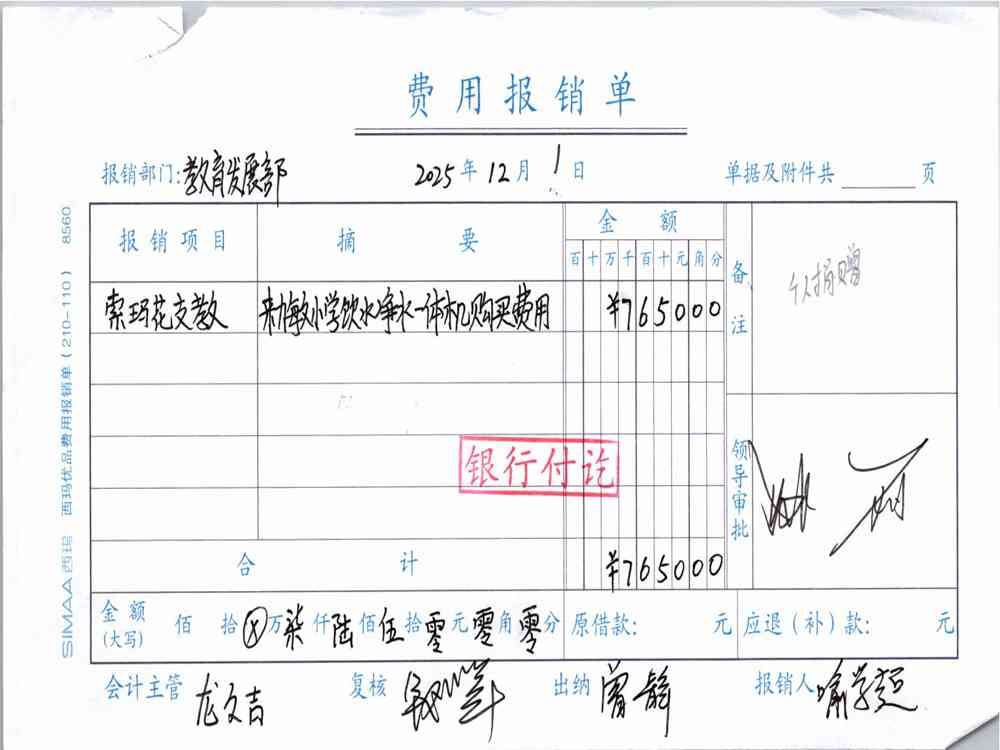 费用报销单
报销部门:教育发展部 2025年12月1日 单据及附件共 页
报销项目 摘要 金额 备注
百十万千百十元角分
索玛花支教 来梅敏小学饮水净水一体机购买费用 ¥765000
个人捐赠
银行付讫
领导审批
合计 ¥765000
金额(大写) 佰拾ⓧ万柒仟陆佰伍拾零元零角零分 原借款: 元 应退(补)款: 元
会计主管 龙文吉 复核 出纳 曾静 报销人 喻学超
SIMAA西玛 西玛优品费用报销单(210-110) 8560